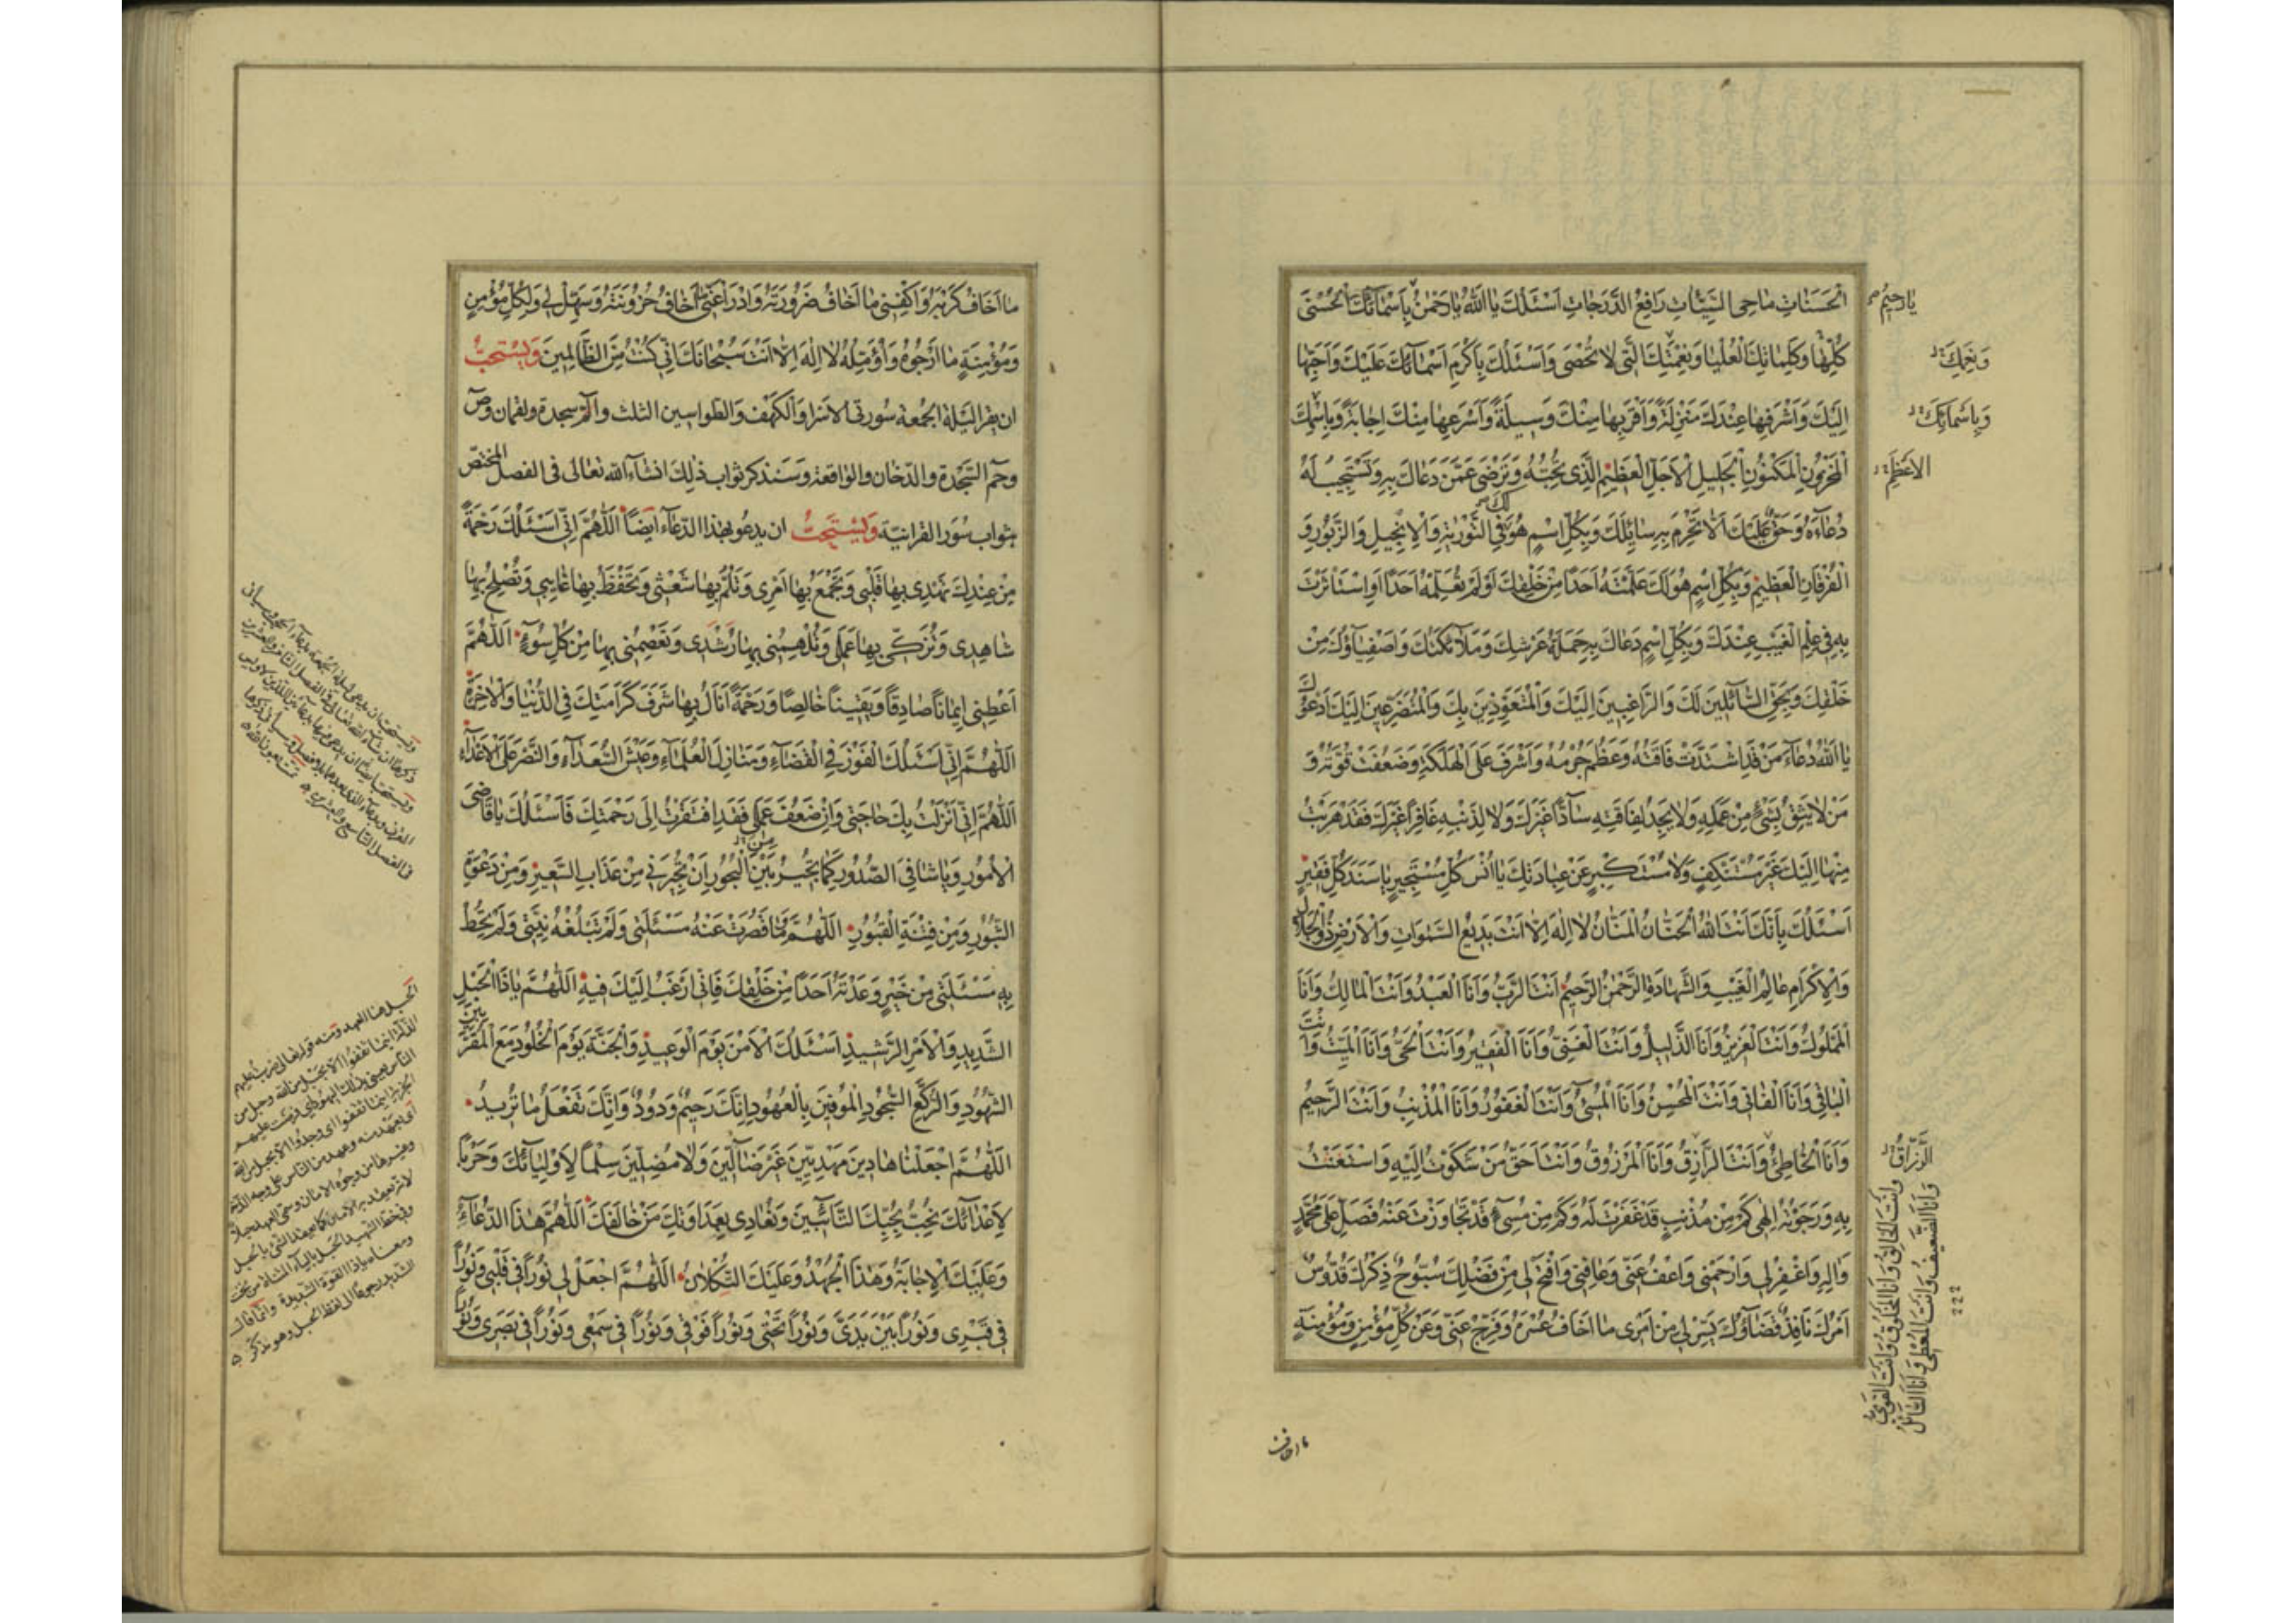 الْحَسَنَاتِ مَاحِيَ السَّيِّئَاتِ رَافِعَ الدَّرَجَاتِ اَسْئَلُكَ يَا اَللّٰهُ يَا رَحْمٰنُ بِاَسْمَائِكَ الْحُسْنَى
يَا رَحِيمُ
كُلِّهَا وَكَلِمَاتِكَ الْعُلْيَا وَنِعْمَتِكَ الَّتِى لَا تُحْصَى وَاَسْئَلُكَ بِاَكْرَمِ اَسْمَائِكَ عَلَيْكَ وَاَحَبِّهَا
وَنِعَمِكَ
اِلَيْكَ وَاَشْرَفِهَا عِنْدَكَ مَنْزِلَةً وَاَقْرَبِهَا مِنْكَ وَسِيلَةً وَاَسْرَعِهَا مِنْكَ اِجَابَةً وَبِاسْمِكَ
وَبِاَسْمَائِكَ
الْمَخْزُونِ الْمَكْنُونِ الْجَلِيلِ الْاَجَلِّ الْعَظِيمِ الَّذِى تُحِبُّهُ وَتَرْضَى عَمَّنْ دَعَاكَ بِهِ وَتَسْتَجِيبُ لَهُ
الْاَعْظَمِ
دُعَاءَهُ وَحَقٌّ عَلَيْكَ اَلَّا تَحْرِمَ بِهِ سَائِلَكَ وَبِكُلِّ اسْمٍ هُوَ لَكَ فِى التَّوْرٰيةِ وَالْاِنْجِيلِ وَالزَّبُورِ وَ
الْفُرْقَانِ الْعَظِيمِ وَبِكُلِّ اسْمٍ هُوَ لَكَ عَلَّمْتَهُ اَحَدًا مِنْ خَلْقِكَ اَوْ لَمْ تُعَلِّمْهُ اَحَدًا اَوِ اسْتَاْثَرْتَ
بِهِ فِى عِلْمِ الْغَيْبِ عِنْدَكَ وَبِكُلِّ اسْمٍ دَعَاكَ بِهِ حَمَلَةُ عَرْشِكَ وَمَلَائِكَتُكَ وَاَصْفِيَاؤُكَ مِنْ
خَلْقِكَ وَبِحَقِّ السَّائِلِينَ لَكَ وَالرَّاغِبِينَ اِلَيْكَ وَالْمُتَعَوِّذِينَ بِكَ وَالْمُتَضَرِّعِينَ اِلَيْكَ اَدْعُوكَ
يَا اَللّٰهُ دُعَاءَ مَنْ قَدِ اشْتَدَّتْ فَاقَتُهُ وَعَظُمَ جُرْمُهُ وَاَشْرَفَ عَلَى الْهَلَكَةِ وَضَعُفَتْ قُوَّتُهُ وَ
مَنْ لَا يَثِقُ بِشَىْءٍ مِنْ عَمَلِهِ وَلَا يَجِدُ لِفَاقَتِهِ سَادًّا غَيْرَكَ وَلَا لِذَنْبِهِ غَافِرًا غَيْرَكَ فَقَدْ هَرَبْتُ
مِنْهَا اِلَيْكَ غَيْرَ مُسْتَنْكِفٍ وَلَا مُسْتَكْبِرٍ عَنْ عِبَادَتِكَ يَا اُنْسَ كُلِّ مُسْتَجِيرٍ يَا سَنَدَ كُلِّ فَقِيرٍ
اَسْئَلُكَ بِاَنَّكَ اَنْتَ اللّٰهُ الْحَنَّانُ الْمَنَّانُ لَا اِلٰهَ اِلَّا اَنْتَ بَدِيعُ السَّمٰوَاتِ وَالْاَرْضِ ذُو الْجَلَالِ
وَالْاِكْرَامِ عَالِمُ الْغَيْبِ وَالشَّهَادَةِ الرَّحْمٰنُ الرَّحِيمُ اَنْتَ الرَّبُّ وَاَنَا الْعَبْدُ وَاَنْتَ الْمَالِكُ وَاَنَا
الْمَمْلُوكُ وَاَنْتَ الْعَزِيزُ وَاَنَا الذَّلِيلُ وَاَنْتَ الْغَنِىُّ وَاَنَا الْفَقِيرُ وَاَنْتَ الْحَىُّ وَاَنَا الْمَيِّتُ وَاَنْتَ
الْبَاقِى وَاَنَا الْفَانِى وَاَنْتَ الْمُحْسِنُ وَاَنَا الْمُسِىءُ وَاَنْتَ الْغَفُورُ وَاَنَا الْمُذْنِبُ وَاَنْتَ الرَّحِيمُ
وَاَنَا الْخَاطِئُ وَاَنْتَ الرَّازِقُ وَاَنَا الْمَرْزُوقُ وَاَنْتَ اَحَقُّ مَنْ شَكَوْتُ اِلَيْهِ وَاسْتَغَثْتُ
الرَّزَّاقُ
وَاَنْتَ الْخَالِقُ وَاَنَا الْمَخْلُوقُ وَاَنْتَ الْقَوِىُّ
وَاَنَا الضَّعِيفُ وَاَنْتَ الْمُعْطِى وَاَنَا السَّائِلُ
بِهِ وَرَجَوْتُهُ اِلٰهِى كَمْ مِنْ مُذْنِبٍ قَدْ غَفَرْتَ لَهُ وَكَمْ مِنْ مُسِىءٍ قَدْ تَجَاوَزْتَ عَنْهُ فَصَلِّ عَلَى مُحَمَّدٍ
وَاٰلِهِ وَاغْفِرْ لِى وَارْحَمْنِى وَاعْفُ عَنِّى وَعَافِنِى وَافْتَحْ لِى مِنْ فَضْلِكَ سُبُّوحٌ ذِكْرُكَ قُدُّوسٌ
اَمْرُكَ نَافِذٌ قَضَاؤُكَ يَسِّرْ لِى مِنْ اَمْرِى مَا اَخَافُ عُسْرَهُ وَفَرِّجْ عَنِّى وَعَنْ كُلِّ مُؤْمِنٍ وَمُؤْمِنَةٍ
ما اخاف
مَا اَخَافُ كَرْبَهُ وَاكْفِنِى مَا اَخَافُ ضَرُورَتَهُ وَادْرَاْ عَنِّى مَا اَخَافُ حُزُونَتَهُ وَسَهِّلْ لِى وَلِكُلِّ مُؤْمِنٍ
وَمُؤْمِنَةٍ مَا اَرْجُوهُ وَاُؤَمِّلُهُ لَا اِلٰهَ اِلَّا اَنْتَ سُبْحَانَكَ اِنِّى كُنْتُ مِنَ الظَّالِمِينَ وَيُسْتَحَبُّ
ان يقرا ليلة الجمعة سورتى الاسراء والكهف والطواسين الثلث والم سجدة ولقمان وص
وحم السجدة والدخان والواقعة وسنذكر ثواب ذلك انشاء الله تعالى فى الفصل المختص
بثواب سور القرانية وَيُسْتَحَبُّ ان يدعو بهذا الدعاء ايضاً اَللّٰهُمَّ اِنِّى اَسْئَلُكَ رَحْمَةً
مِنْ عِنْدِكَ تَهْدِى بِهَا قَلْبِى وَتَجْمَعُ بِهَا اَمْرِى وَتَلُمُّ بِهَا شَعْثِى وَتَحْفَظُ بِهَا غَائِبِى وَتُصْلِحُ بِهَا
شَاهِدِى وَتُزَكِّى بِهَا عَمَلِى وَتُلْهِمُنِى بِهَا رُشْدِى وَتَعْصِمُنِى بِهَا مِنْ كُلِّ سُوءٍ اَللّٰهُمَّ
اَعْطِنِى اِيمَانًا صَادِقًا وَيَقِينًا خَالِصًا وَرَحْمَةً اَنَالُ بِهَا شَرَفَ كَرَامَتِكَ فِى الدُّنْيَا وَالْاٰخِرَةِ
اَللّٰهُمَّ اِنِّى اَسْئَلُكَ الْفَوْزَ فِى الْقَضَاءِ وَمَنَازِلَ الْعُلَمَاءِ وَعَيْشَ السُّعَدَاءِ وَالنَّصْرَ عَلَى الْاَعْدَاءِ
اَللّٰهُمَّ اِنِّى اَنْزَلْتُ بِكَ حَاجَتِى وَاِنْ ضَعُفَ عَمَلِى فَقَدِ افْتَقَرْتُ اِلَى رَحْمَتِكَ فَاَسْئَلُكَ يَا قَاضِىَ
الْاُمُورِ وَيَا شَافِىَ الصُّدُورِ كَمَا تُجِيرُ بَيْنَ الْبُحُورِ اَنْ تُجِيرَنِى مِنْ عَذَابِ السَّعِيرِ وَمِنْ دَعْوَةِ
الثُّبُورِ وَمِنْ فِتْنَةِ الْقُبُورِ اَللّٰهُمَّ وَمَا قَصُرَتْ عَنْهُ مَسْئَلَتِى وَلَمْ تَبْلُغْهُ نِيَّتِى وَلَمْ تُحِطْ
بِهِ مَسْئَلَتِى مِنْ خَيْرٍ وَعَدْتَهُ اَحَدًا مِنْ خَلْقِكَ فَاِنِّى اَرْغَبُ اِلَيْكَ فِيهِ اَللّٰهُمَّ يَا ذَا الْحَبْلِ
الشَّدِيدِ وَالْاَمْرِ الرَّشِيدِ اَسْئَلُكَ الْاَمْنَ يَوْمَ الْوَعِيدِ وَالْجَنَّةَ يَوْمَ الْخُلُودِ مَعَ الْمُقَرَّبِينَ
الشُّهُودِ وَالرُّكَّعِ السُّجُودِ الْمُوفِينَ بِالْعُهُودِ اِنَّكَ رَحِيمٌ وَدُودٌ وَاِنَّكَ تَفْعَلُ مَا تُرِيدُ
اَللّٰهُمَّ اجْعَلْنَا هَادِينَ مَهْدِيِّينَ غَيْرَ ضَالِّينَ وَلَا مُضِلِّينَ سِلْمًا لِاَوْلِيَائِكَ وَحَرْبًا
لِاَعْدَائِكَ نُحِبُّ بِحُبِّكَ التَّائِبِينَ وَنُعَادِى بِعَدَاوَتِكَ مَنْ خَالَفَكَ اَللّٰهُمَّ هٰذَا الدُّعَاءُ
وَعَلَيْكَ الْاِجَابَةُ وَهٰذَا الْجُهْدُ وَعَلَيْكَ التُّكْلَانُ اَللّٰهُمَّ اجْعَلْ لِى نُورًا فِى قَلْبِى وَنُورًا
فِى قَبْرِى وَنُورًا بَيْنَ يَدَىَّ وَنُورًا تَحْتِى وَنُورًا فَوْقِى وَنُورًا فِى سَمْعِى وَنُورًا فِى بَصَرِى وَنُورًا